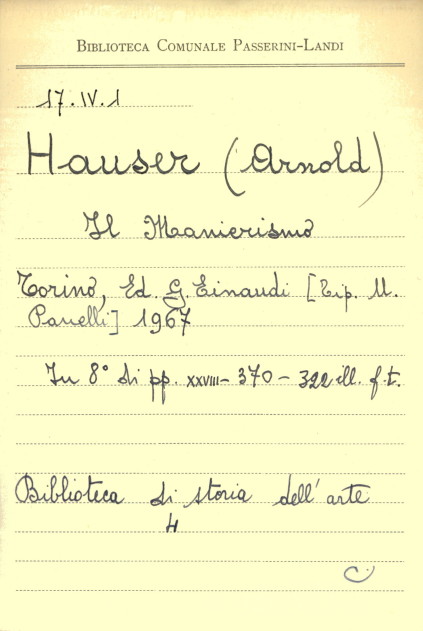 BIBLIOTECA COMUNALE PASSERINI-LANDI
17.IV.1
Hauser (Arnold)
Il Manierismo
Torino, Ed. G. Einaudi [Tip. U.
Panelli] 1967
In 8° di pp. XXVIII - 370 - 322 ill. f.t.
Biblioteca di storia dell'arte
4